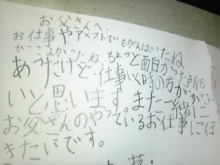 お父さんへ
お仕事やアメフトでもがんばったね
かっこよかったね ちょっと面白かった所も
あったけど、仕事いく時の方がか
いと思います。また一緒に
お父さんのやっているお仕事に行
きたいです。